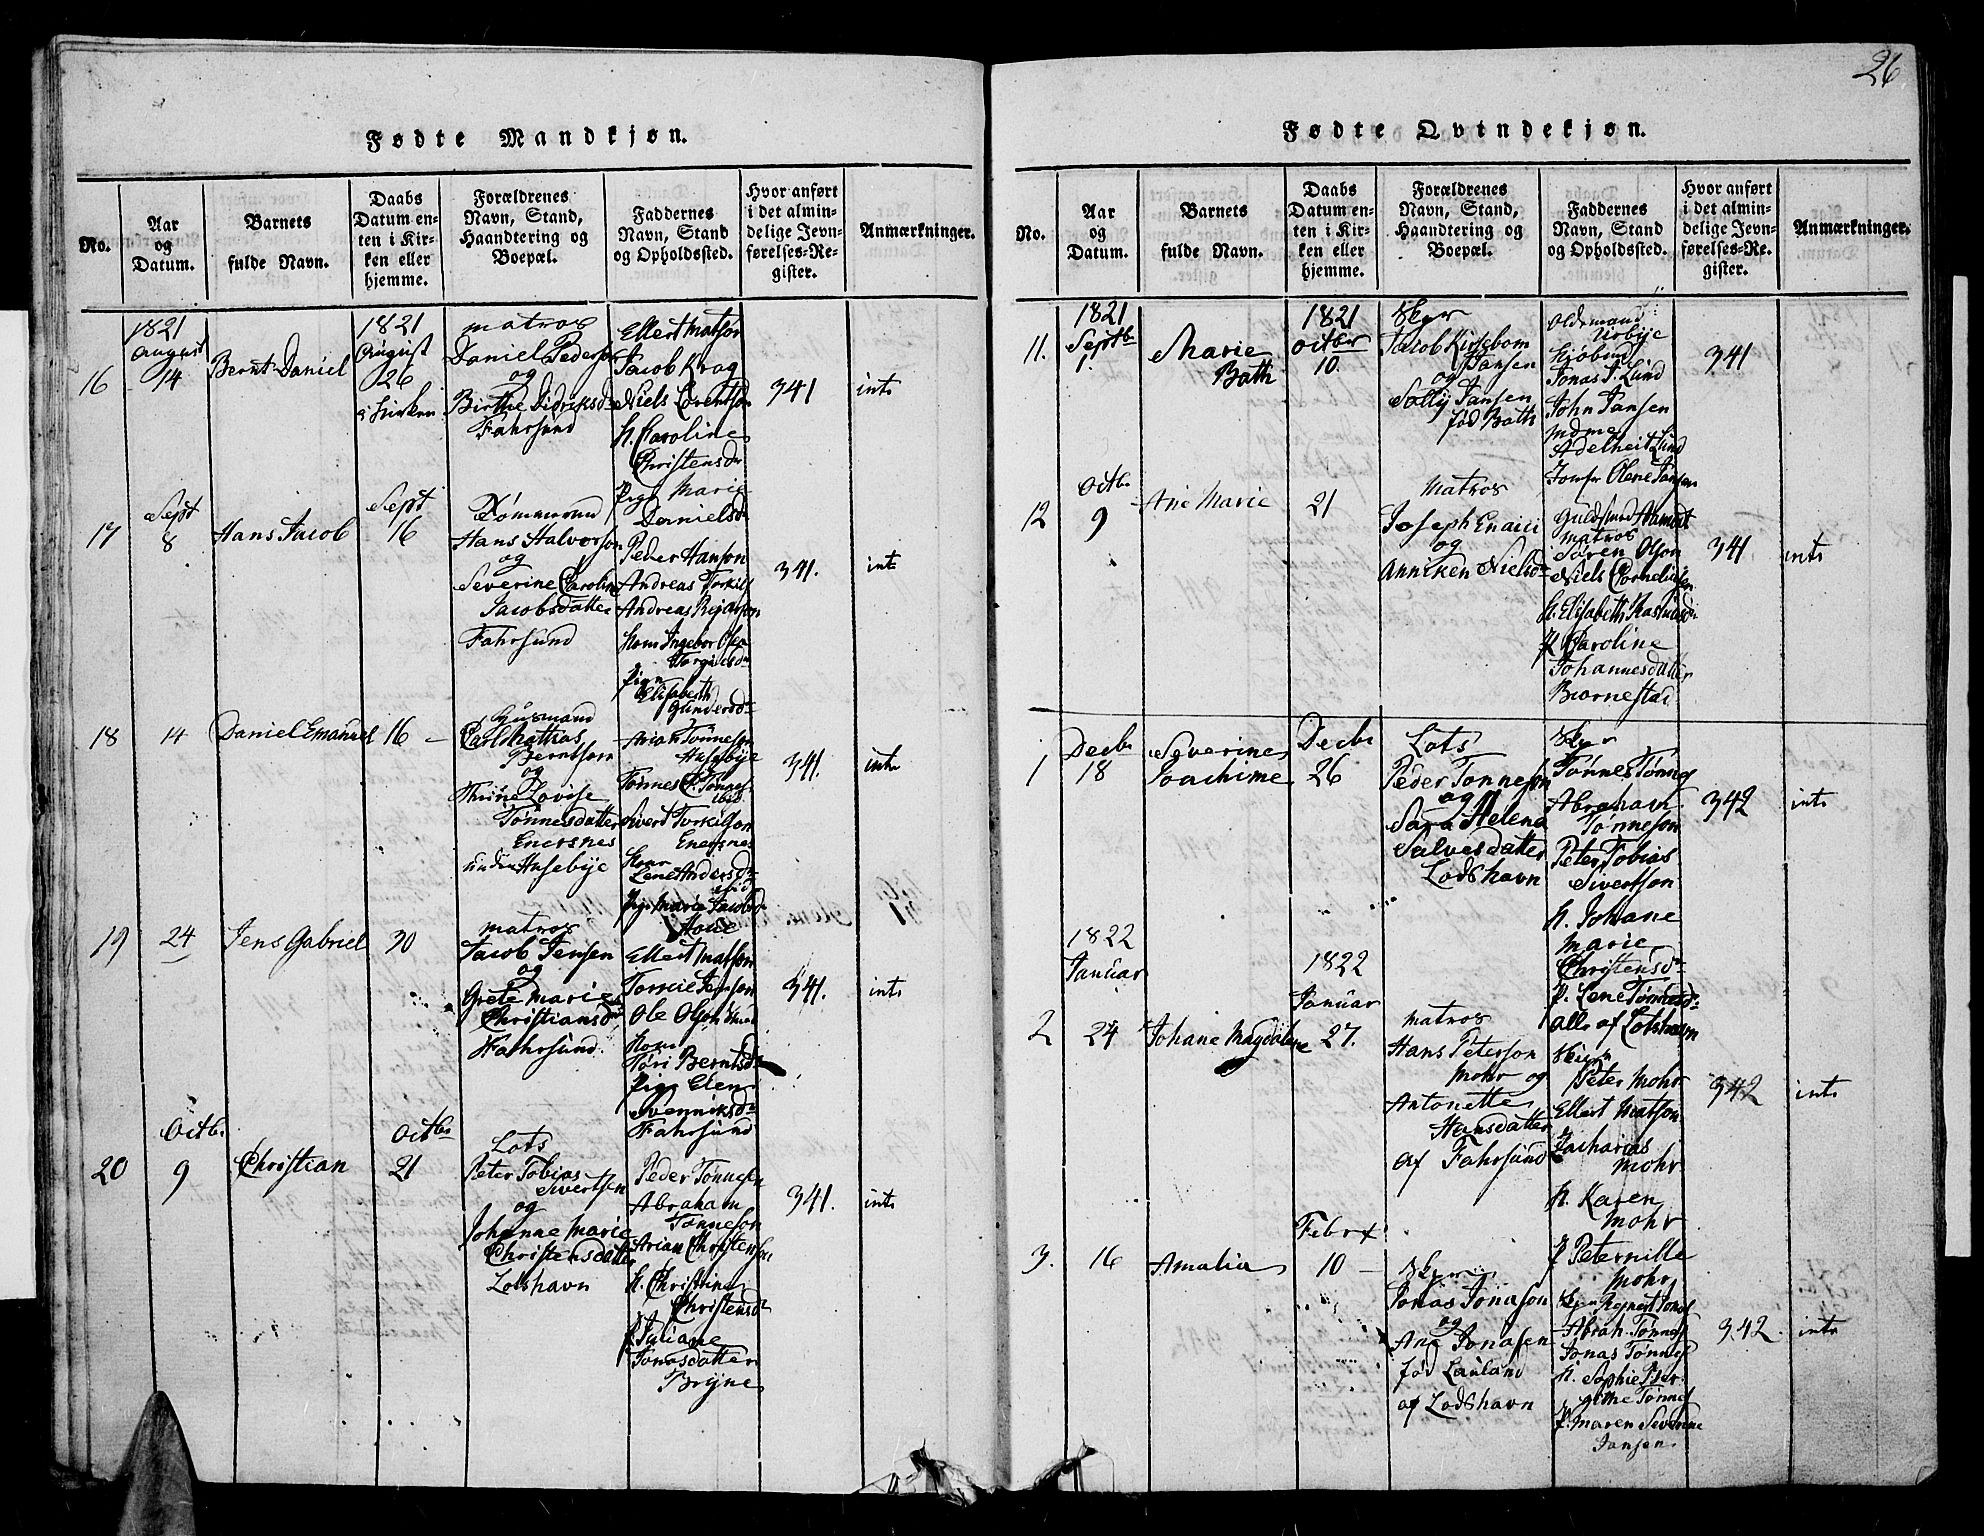 26
Fødte Mandkjøn.
No.
Aar
og
Datum.
Barnets
fulde Navn.
Daabs
Datum en-
ten i Kir-
ken eller
hjemme.
Forældrenes
Navn, Stand,
Haandtering og
Boepæl.
Faddernes
Navn, Stand
og Opholdssted.
Hvor anført
i det almin-
delige Jevn-
førelses-Re-
gister.
Anmærkninger.
16
1821
August
14
Bernt Daniel
1821
August
26
i Kirken
matros
Daniel Pederson
og
Birthe Didriksdr
Fahrsund
Ellert Matson
Jacob Krag
Niels Evertson
K. Caroline
Christensdr
Pige Marie
Danielsdr
341
int
17
Sept
8
Hans Jacob
Sept
16
Tømmermd
Hans Halvorson
og
Severine Caroline
Jacobsdatter
Fahrsund
Peder Hanson
Andreas Torkils
Andreas Rejerson
Kone Ingebor Olea
Torgiersdr
Pigen
Elisabeth
Gundersdr
341.
int
18
14
Daniel Emanuel
16 -
Husmand
Carl Mathias
Berntson
og
Thrine Lovise
Tønnesdatter
Enersnes
under Husebÿe
Arian Tønneson
Husebÿe
Tønnes C. Tønnes
ibid
Sivert Torkilson
Enersnes
Kone
Lene Andersdr
ibid
Pige Marie Jacobsdr
Houe
341.
int
19
24
Jens Gabriel
30
matros
Jacob Jensen
og
Grete Marie
Christiansdr
Fahrsund.
Ellert Matson
Tønnie Jenson
Ole Olson
Kone
Tøri Berntsdr
Pige Elen
Svenniksdr
Fahrsund
341.
int
20
Octbr
9
Christian
Octbr
21
Lots
Peter Tobias
Sivertsen
og
Johanne Marie
Christensdatter
Lotshavn
Peder Tønnesen
Abraham
Tønneson
Arian Christensen
K. Christine
Christensdr
P. Juliane
Jonasdatter
Brÿne
341.
int
Fødte Qvindekjøn.
No.
Aar
og
Datum.
Barnets
fulde Navn.
Daabs
Datum en-
ten i Kir-
ken eller
hjemme.
Forældrenes
Navn, Stand,
Haandtering og
Boepæl.
Faddernes
Navn, Stand
og Opholdssted.
Hvor anført
i det almin-
delige Jevn-
førelses-Re-
gister.
Anmærkninger.
11.
1821
Septbr
1.
Marie
Bath
1821
Octber
10.
Skpr
Jacob Kirsebom
Jansen
og
Sally Jansen
fød Bath
Oldermand
Urbÿe
Kjøbmd
Jonas J. Lund
John Jansen
Mdme
Adelheit Lund
Jomfr Olene Jansen
341
12
Octbr
9
Ane Marie
21
Matros
Joseph Enaici
og
Anniken Nielsdr
Guldsmed Aamodt
Matros
Søren Olson
Niels Cornelisen
K. Elisabeth Rasmusdr
P. Caroline
Johannesdatter
Biørnestad
341
int
1
Decbr
18
Severine
Joachime
Decbr
26
Lots
Peder Tønneson
og
Sara Helena
Salvesdatter
Lodshavn
Skpr
Tønnes Tønnes
Abraham
Tørneson
Peter Tobias
Sivertson
K. Johane
Marie
Christensdr
P. Lene Tønnesdr
Alle af Lotshavn
342
int
2
1822
Januar
24
Johane Magdalene
1822
Januar
27.
Matros
Hans Peterson
Mohr og
Antonette
Hansdatter
af Fahrsund
Peter Mohr
Ellert Matson
Zacharias
Mohr
K. Karen
Mohr
P. Peternille
Mohr
342
int
3.
16
Amalia
Febr
10 -
Skpr
Jonas Jonason
og
Ane Jonasen
fød Lauland
af Lodshavn
Skpr Rejnert Jonas
Abrah. Tønnes
Jonas Tønnes
K. Sophie Per
githe Tønnes
P. Maren Severine
Jansen.
342.
int